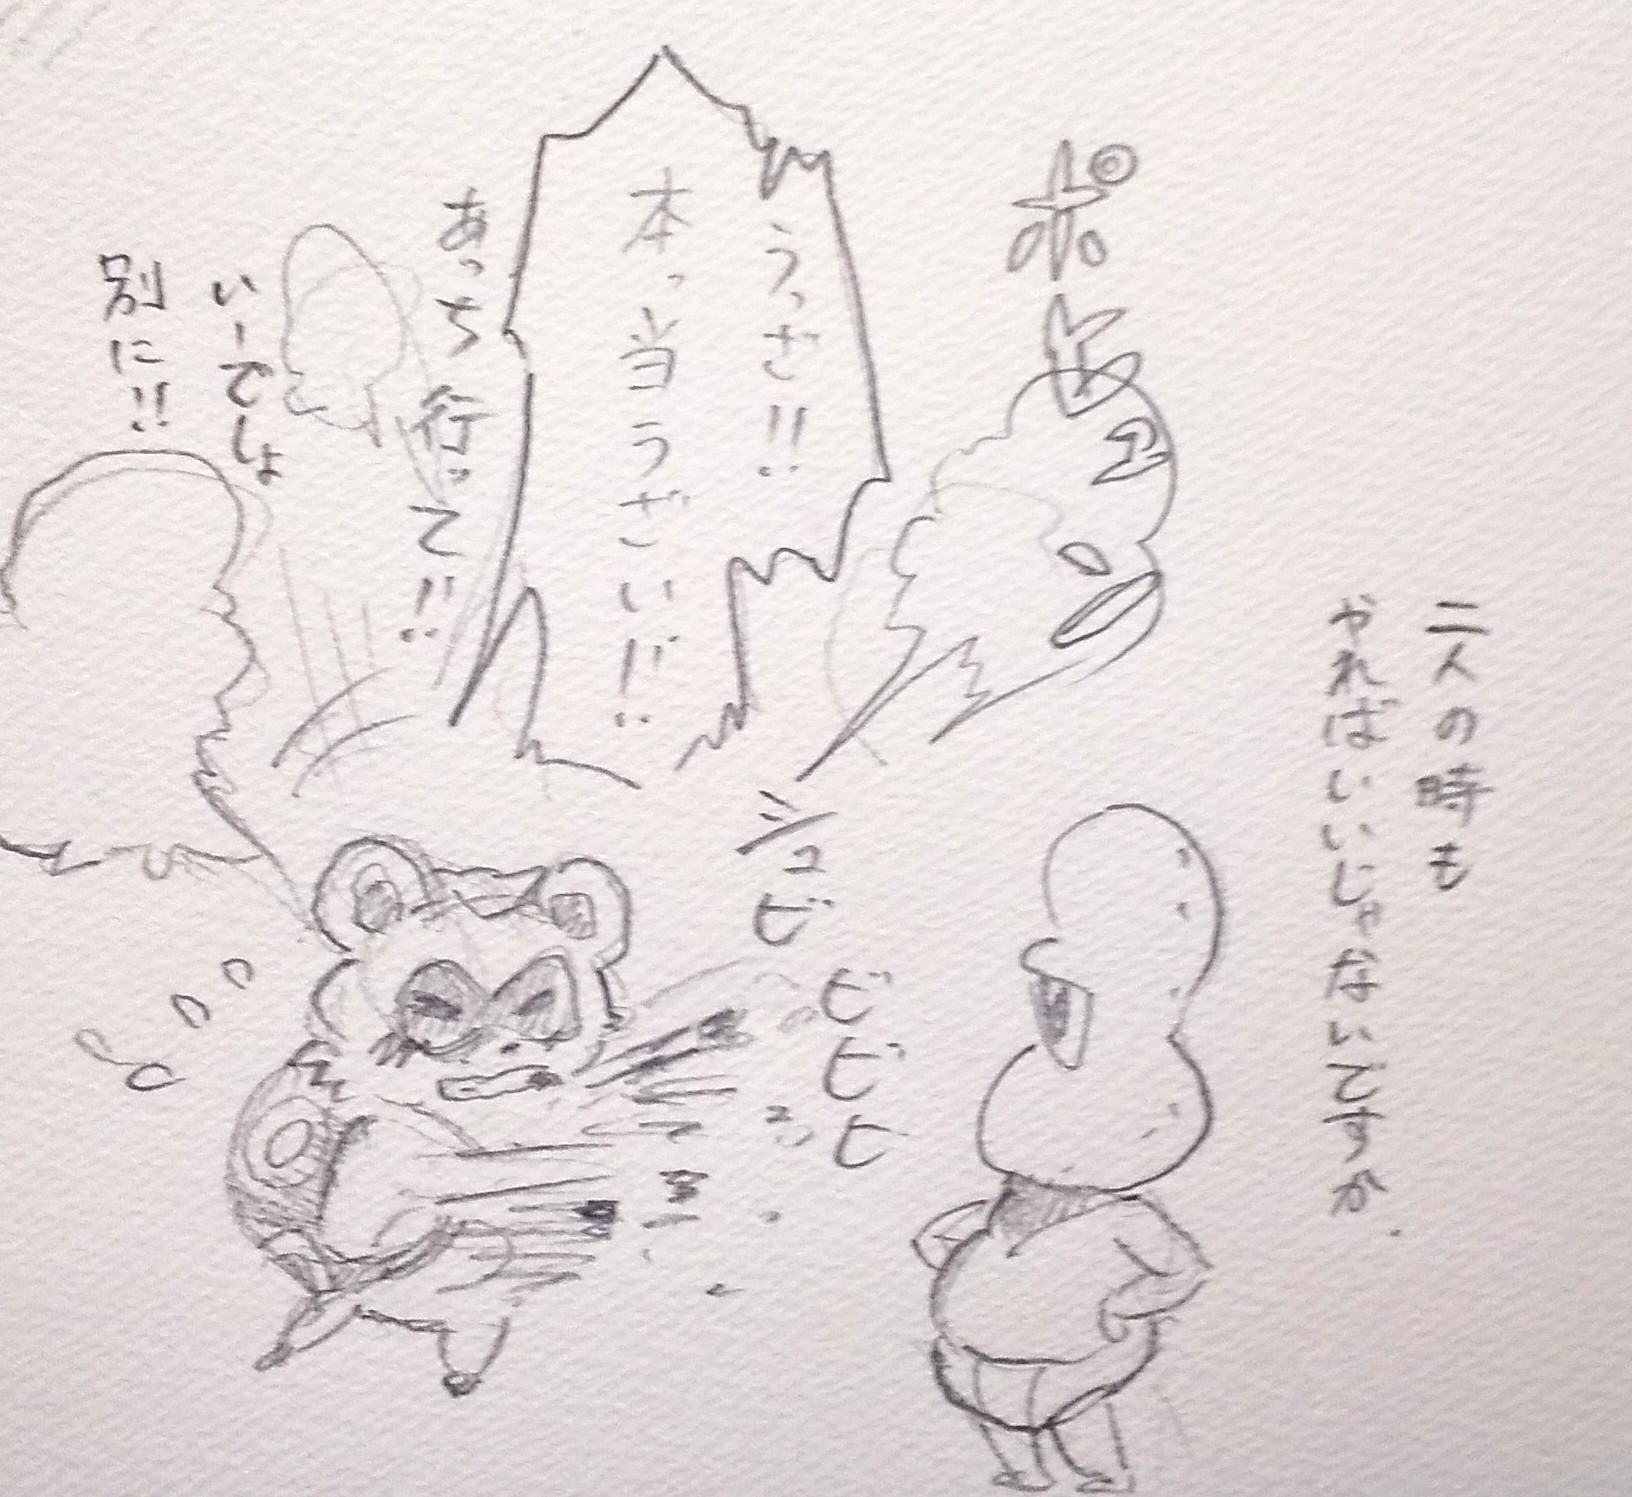 二人の時も
やればいいじゃないですか
うっざ!!
本っ当うざい!!
あっち行って!!
いーでしょ
別に!!
シュビ
ビビビ